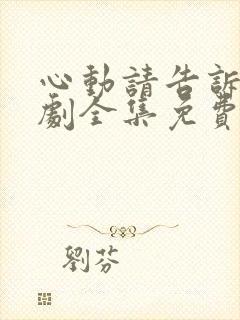 心動請告訴
劇全集免費
劉芬